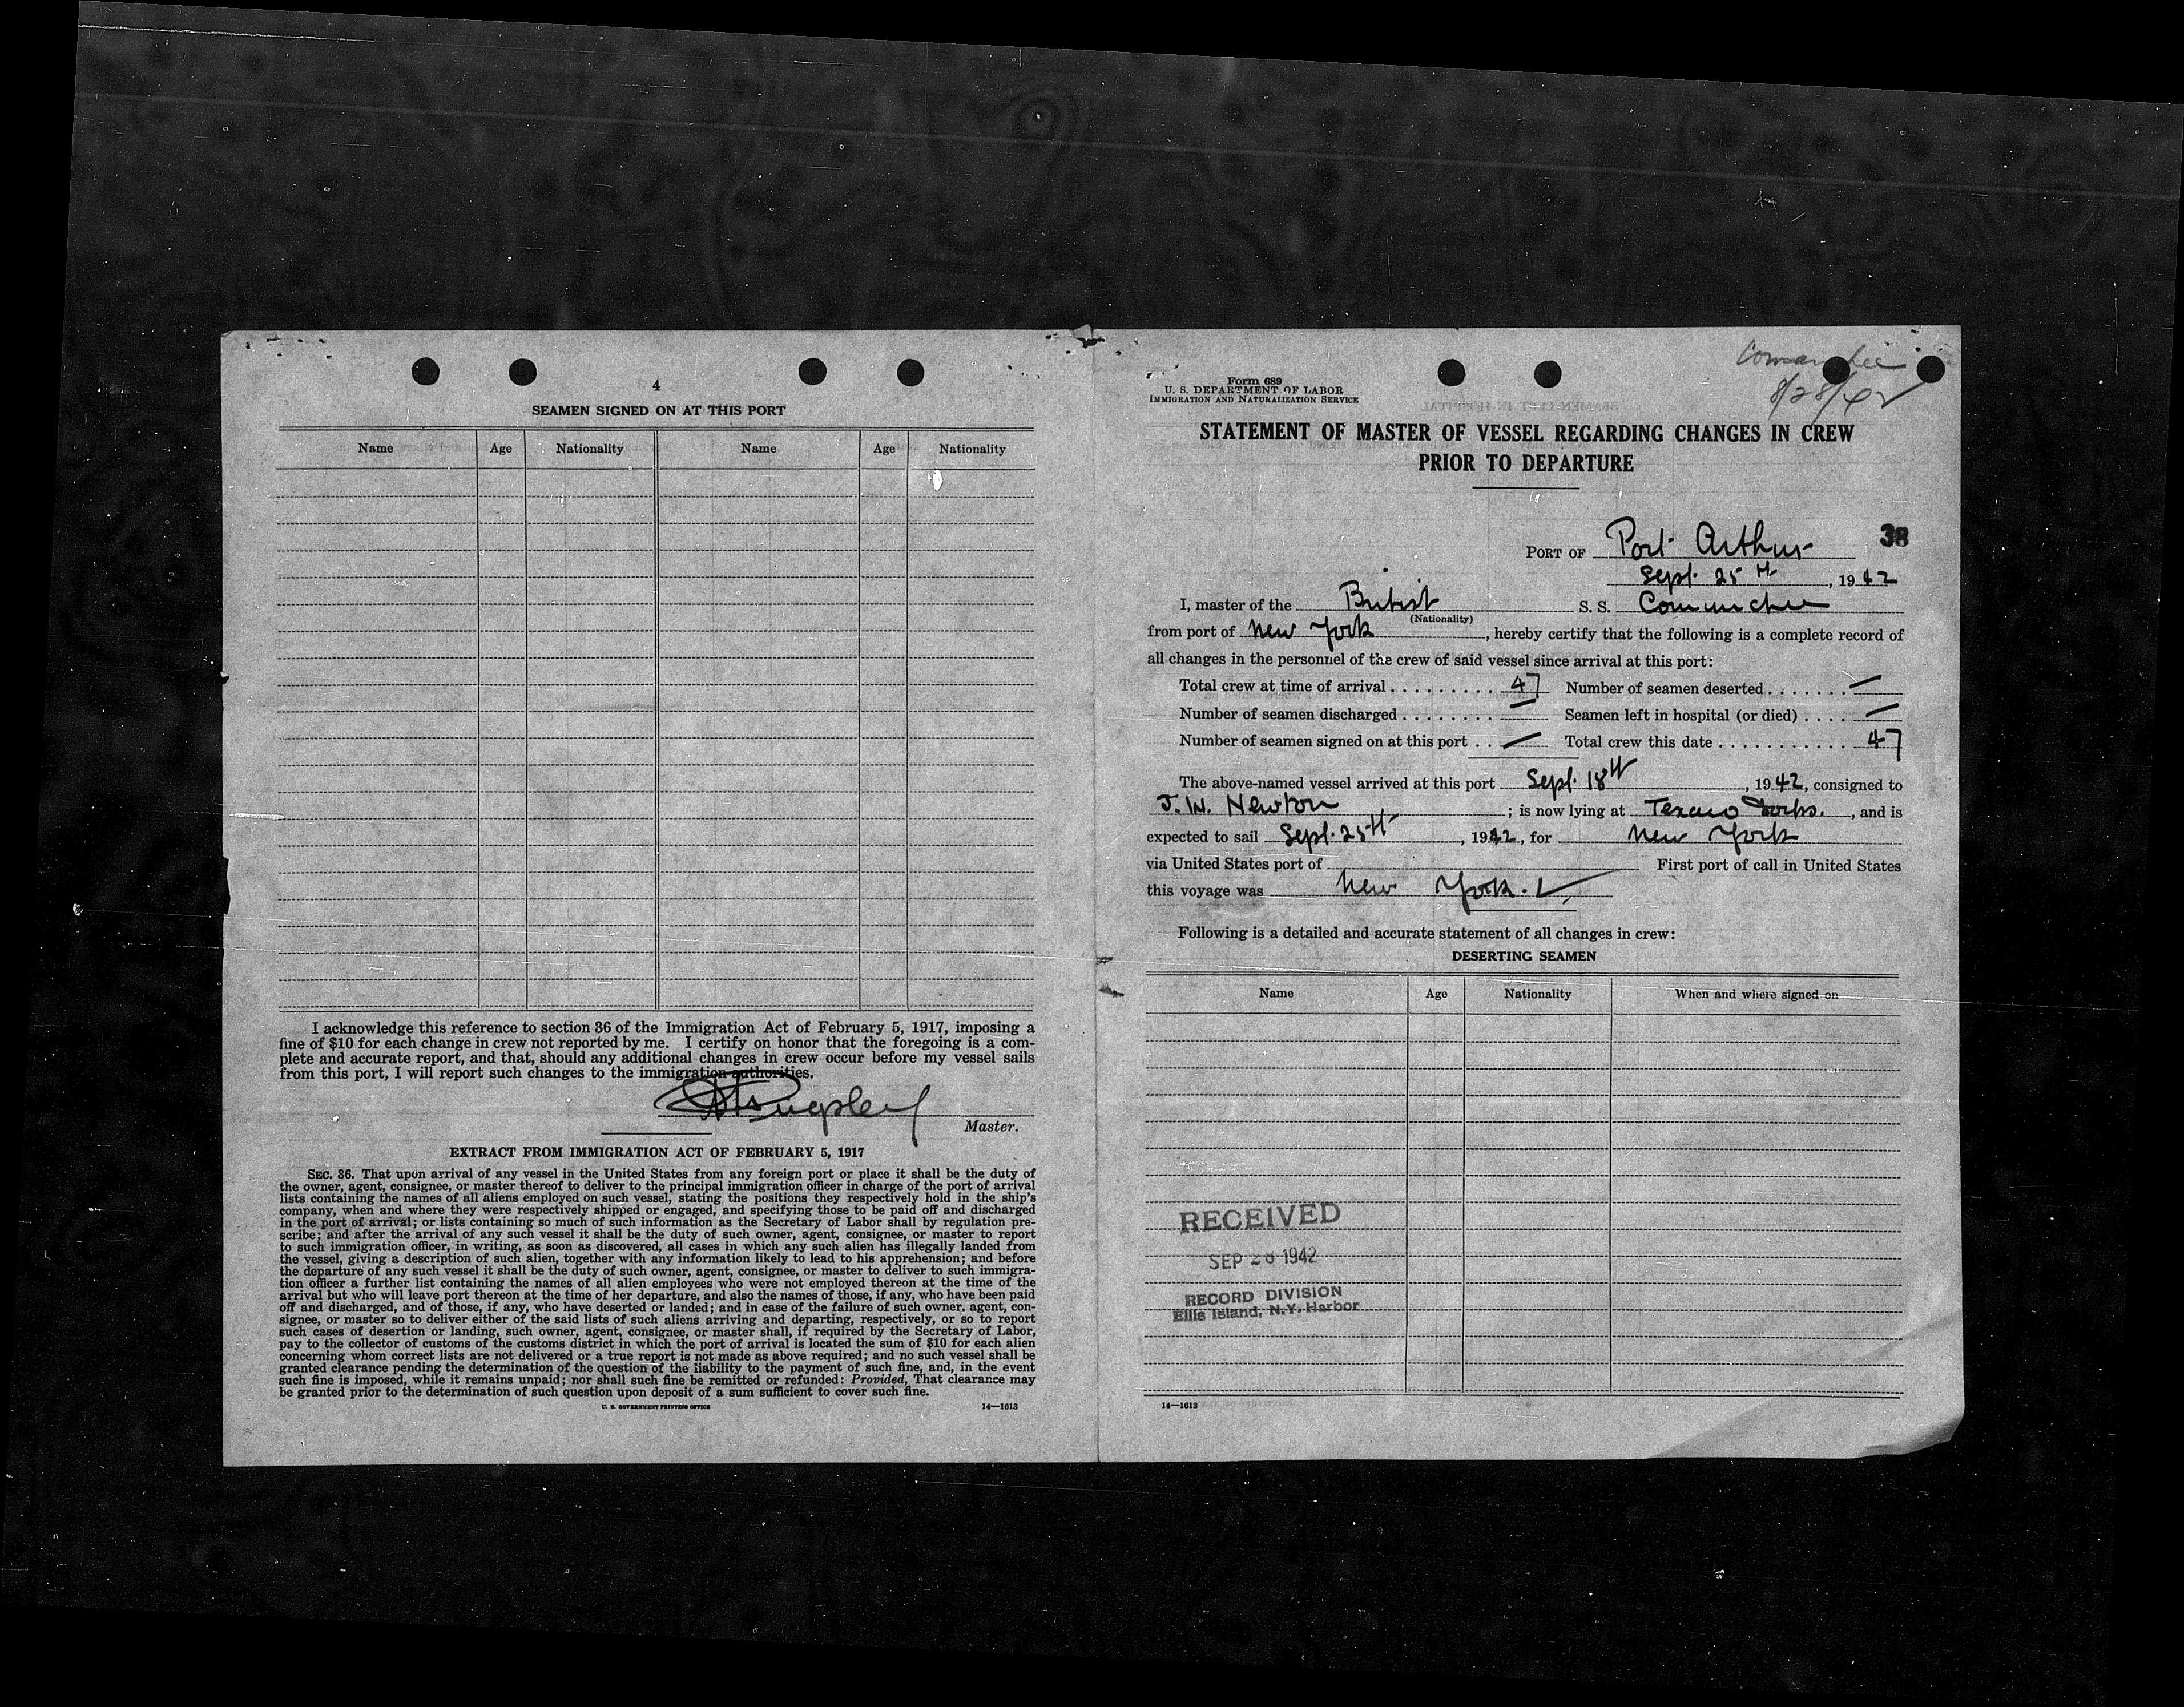 4
SEAMEN SIGNED ON AT THIS PORT
Name Age Nationality Name Age Nationality
I acknowledge this reference to section 36 of the Immigration Act of February 5, 1917, imposing a
fine of $10 for each change in crew not reported by me. I certify on honor that the foregoing is a com-
plete and accurate report, and that, should any additional changes in crew occur before my vessel sails
from this port, I will report such changes to the immigration authorities.
Pugsley
Master.
EXTRACT FROM IMMIGRATION ACT OF FEBRUARY 5, 1917
SEC. 36. That upon arrival of any vessel in the United States from any foreign port or place it shall be the duty of
the owner, agent, consignee, or master thereof to deliver to the principal immigration officer in charge of the port of arrival
lists containing the names of all aliens employed on such vessel, stating the positions they respectively hold in the ship's
company, when and where they were respectively shipped or engaged, and specifying those to be paid off and discharged
in the port of arrival; or lists containing so much of such information as the Secretary of Labor shall by regulation pre-
scribe; and after the arrival of any such vessel it shall be the duty of such owner, agent, consignee, or master to report
to such immigration officer, in writing, as soon as discovered, all cases in which any such alien has illegally landed from
the vessel, giving a description of such alien, together with any information likely to lead to his apprehension; and before
the departure of any such vessel it shall be the duty of such owner, agent, consignee, or master to deliver to such immigra-
tion officer a further list containing the names of all alien employees who were not employed thereon at the time of the
arrival but who will leave port thereon at the time of her departure, and also the names of those, if any, who have been paid
off and discharged, and of those, if any, who have deserted or landed; and in case of the failure of such owner, agent, con-
signee, or master so to deliver either of the said lists of such aliens arriving and departing, respectively, or so to report
such cases of desertion or landing, such owner, agent, consignee, or master shall, if required by the Secretary of Labor,
pay to the collector of customs of the customs district in which the port of arrival is located the sum of $10 for each alien
concerning whom correct lists are not delivered or a true report is not made as above required; and no such vessel shall be
granted clearance pending the determination of the question of the liability to the payment of such fine, and, in the event
such fine is imposed, while it remains unpaid; nor shall such fine be remitted or refunded: Provided, That clearance may
be granted prior to the determination of such question upon deposit of a sum sufficient to cover such fine.
U. S. GOVERNMENT PRINTING OFFICE 14—1613
Comanchee
8/28/42
Form 689
U. S. DEPARTMENT OF LABOR
IMMIGRATION AND NATURALIZATION SERVICE
STATEMENT OF MASTER OF VESSEL REGARDING CHANGES IN CREW
PRIOR TO DEPARTURE
PORT OF Port Arthur 38
Sept. 25th, 1942
I, master of the British S. S. Comanchee
(Nationality)
from port of New York, hereby certify that the following is a complete record of
all changes in the personnel of the crew of said vessel since arrival at this port:
Total crew at time of arrival . . . . . . . . . 47 Number of seamen deserted . . . . . . . —
Number of seamen discharged . . . . . . . . — Seamen left in hospital (or died) . . . . —
Number of seamen signed on at this port . . — Total crew this date . . . . . . . . . . . . 47
The above-named vessel arrived at this port Sept. 18th, 1942, consigned to
J. W. Newton; is now lying at Texaco Docks., and is
expected to sail Sept. 25th, 1942, for New York
via United States port of First port of call in United States
this voyage was New York.
Following is a detailed and accurate statement of all changes in crew:
DESERTING SEAMEN
Name Age Nationality When and where signed on
RECEIVED
SEP 1942
RECORD DIVISION
Ellis Island, N.Y. Harbor
14—1613